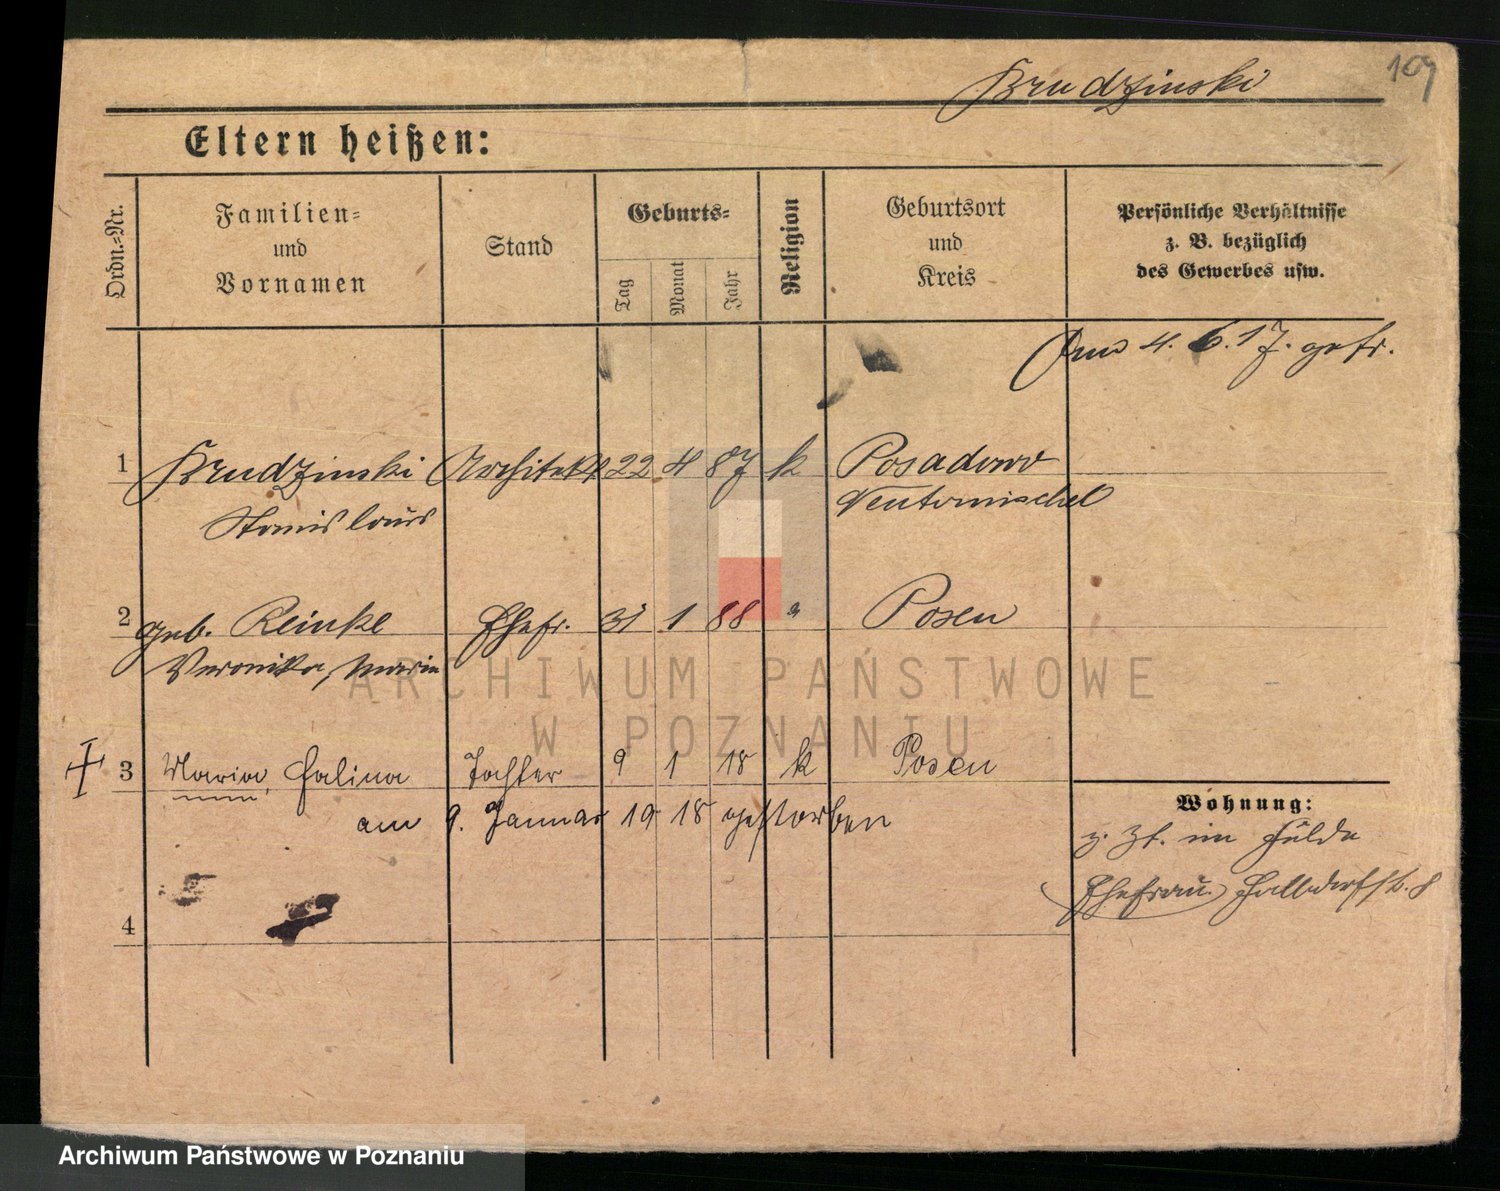 109
Brudzinski
Eltern heißen:
Ordn.-Nr.
Familien-
und
Vornamen
Stand
Geburts-
Tag
Monat
Jahr
Religion
Geburtsort
und
Kreis
Persönliche Verhältnisse
z. B. bezüglich
des Gewerbes usw.
4. 6. 17. getr.
1 Brudzinski Architekt 22 4 87 k Posadowo
Stanislaus Neutomischel
2 geb. Reinke Ehefr. 31 1 88 " Posen
Veronika, Maria
3 Maria, Halina Tochter 9 1 18 k Posen
am 9. Januar 1918 gestorben
4
Wohnung:
z. Zt. im Felde
Ehefrau. Halbdorfstr. 8
ARCHIWUM PAŃSTWOWE
W POZNANIU
Archiwum Państwowe w Poznaniu